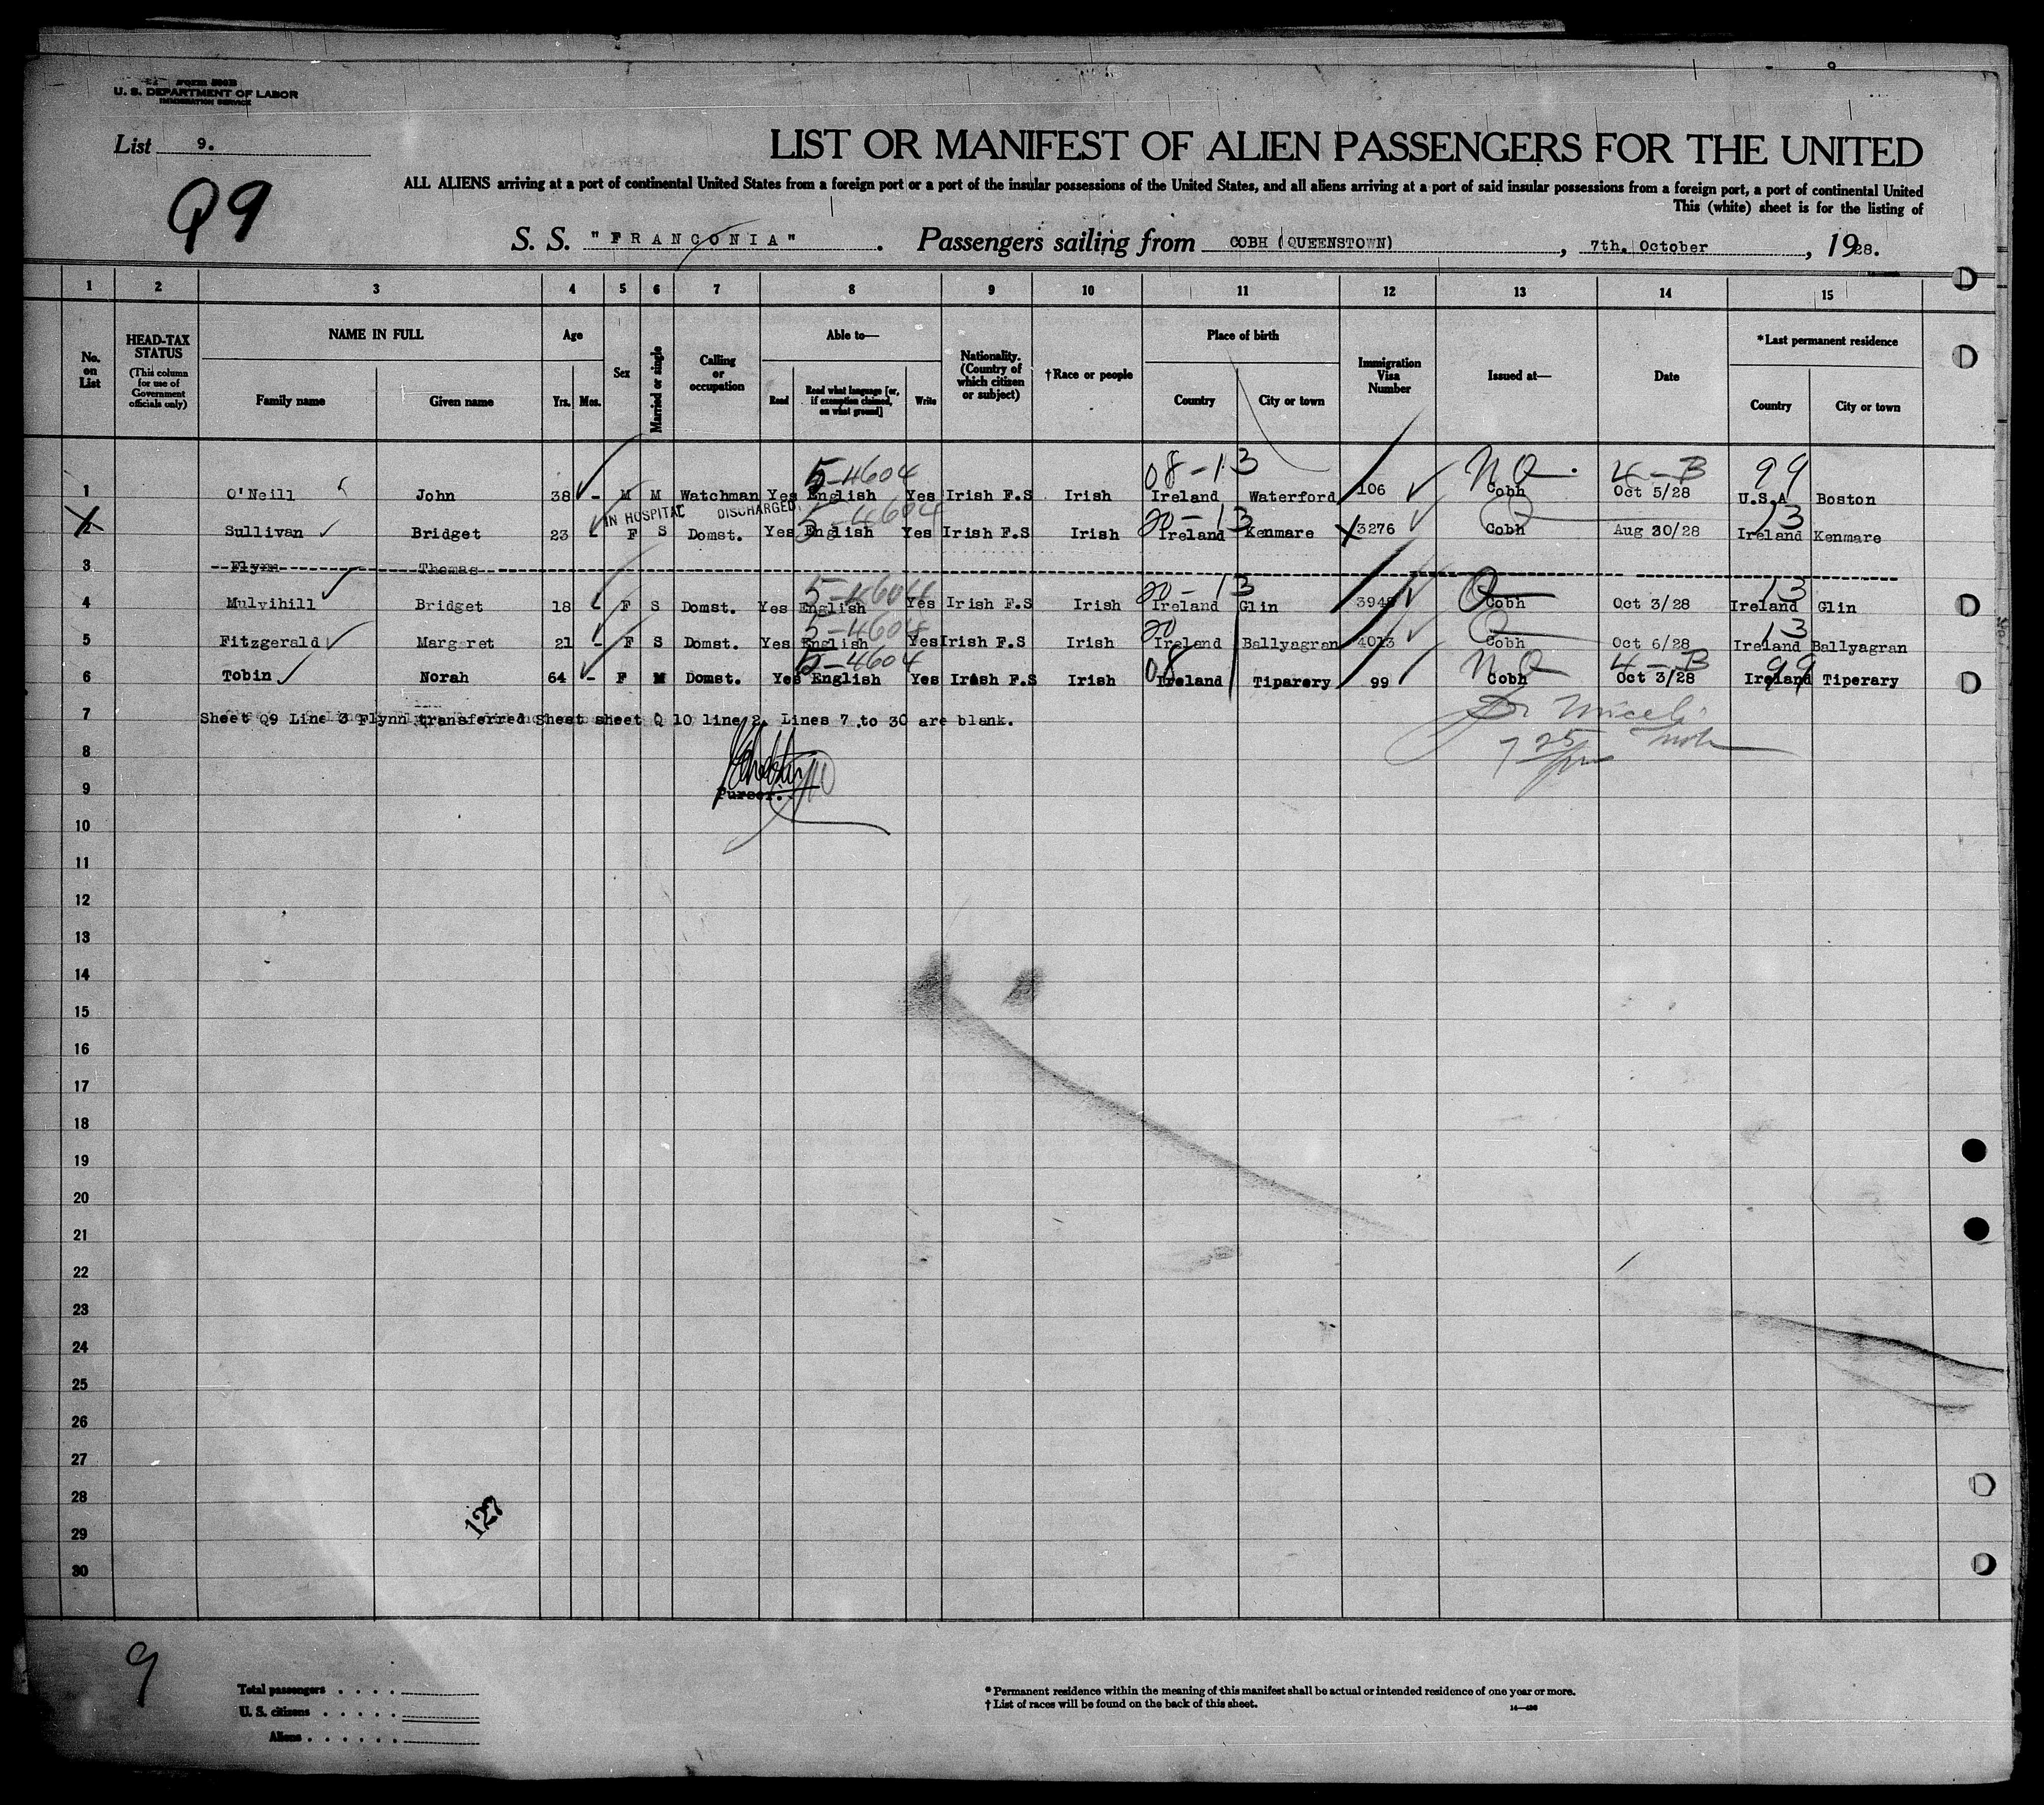 U. S. DEPARTMENT OF LABOR
IMMIGRATION SERVICE
List 9.
Q9
LIST OR MANIFEST OF ALIEN PASSENGERS FOR THE UNITED
ALL ALIENS arriving at a port of continental United States from a foreign port or a port of the insular possessions of the United States, and all aliens arriving at a port of said insular possessions from a foreign port, a port of continental United
This (white) sheet is for the listing of
S. S. "FRANCONIA". Passengers sailing from COBH (QUEENSTOWN), 7th. October, 1928.
1 2 3 4 5 6 7 8 9 10 11 12 13 14 15
No. on List
HEAD-TAX STATUS (This column for use of Government officials only)
NAME IN FULL
Family name
Given name
Age
Yrs. Mos.
Sex
Married or single
Calling or occupation
Able to—
Read
Read what language [or, if exemption claimed, on what ground]
Write
Nationality. (Country of which citizen or subject)
†Race or people
Place of birth
Country
City or town
Immigration Visa Number
Issued at—
Date
*Last permanent residence
Country
City or town
5-4604 08-13 NQ. 4-B 99
1 O'Neill John 38 - M M Watchman Yes English Yes Irish F.S Irish Ireland Waterford 106 Cobh Oct 5/28 U.S.A Boston
IN HOSPITAL DISCHARGED.
5-4604 20-13 Q 13
2 Sullivan Bridget 23 - F S Domst. Yes English Yes Irish F.S Irish Ireland Kenmare 3276 Cobh Aug 30/28 Ireland Kenmare
3 Flynn Thomas
5-4604 20-13 Q 13
4 Mulvihill Bridget 18 - F S Domst. Yes English Yes Irish F.S Irish Ireland Glin 3948 Cobh Oct 3/28 Ireland Glin
5-4604 20 Q 13
5 Fitzgerald Margaret 21 - F S Domst. Yes English Yes Irish F.S Irish Ireland Ballyagran 4013 Cobh Oct 6/28 Ireland Ballyagran
5-4604 08 NQ 4-B 99
6 Tobin Norah 64 - F M Domst. Yes English Yes Irish F.S Irish Ireland Tiparery 99 Cobh Oct 3/28 Ireland Tiperary
7 Sheet Q9 Line 3 Flynn transferred Sheet sheet Q 10 line 2. Lines 7 to 30 are blank.
8
9 Purser.
10
11
12
13
14
15
16
17
18
19
20
21
22
23
24
25
26
27
28
29
30
127
9
Total passengers
U. S. citizens
Aliens
* Permanent residence within the meaning of this manifest shall be actual or intended residence of one year or more.
† List of races will be found on the back of this sheet.